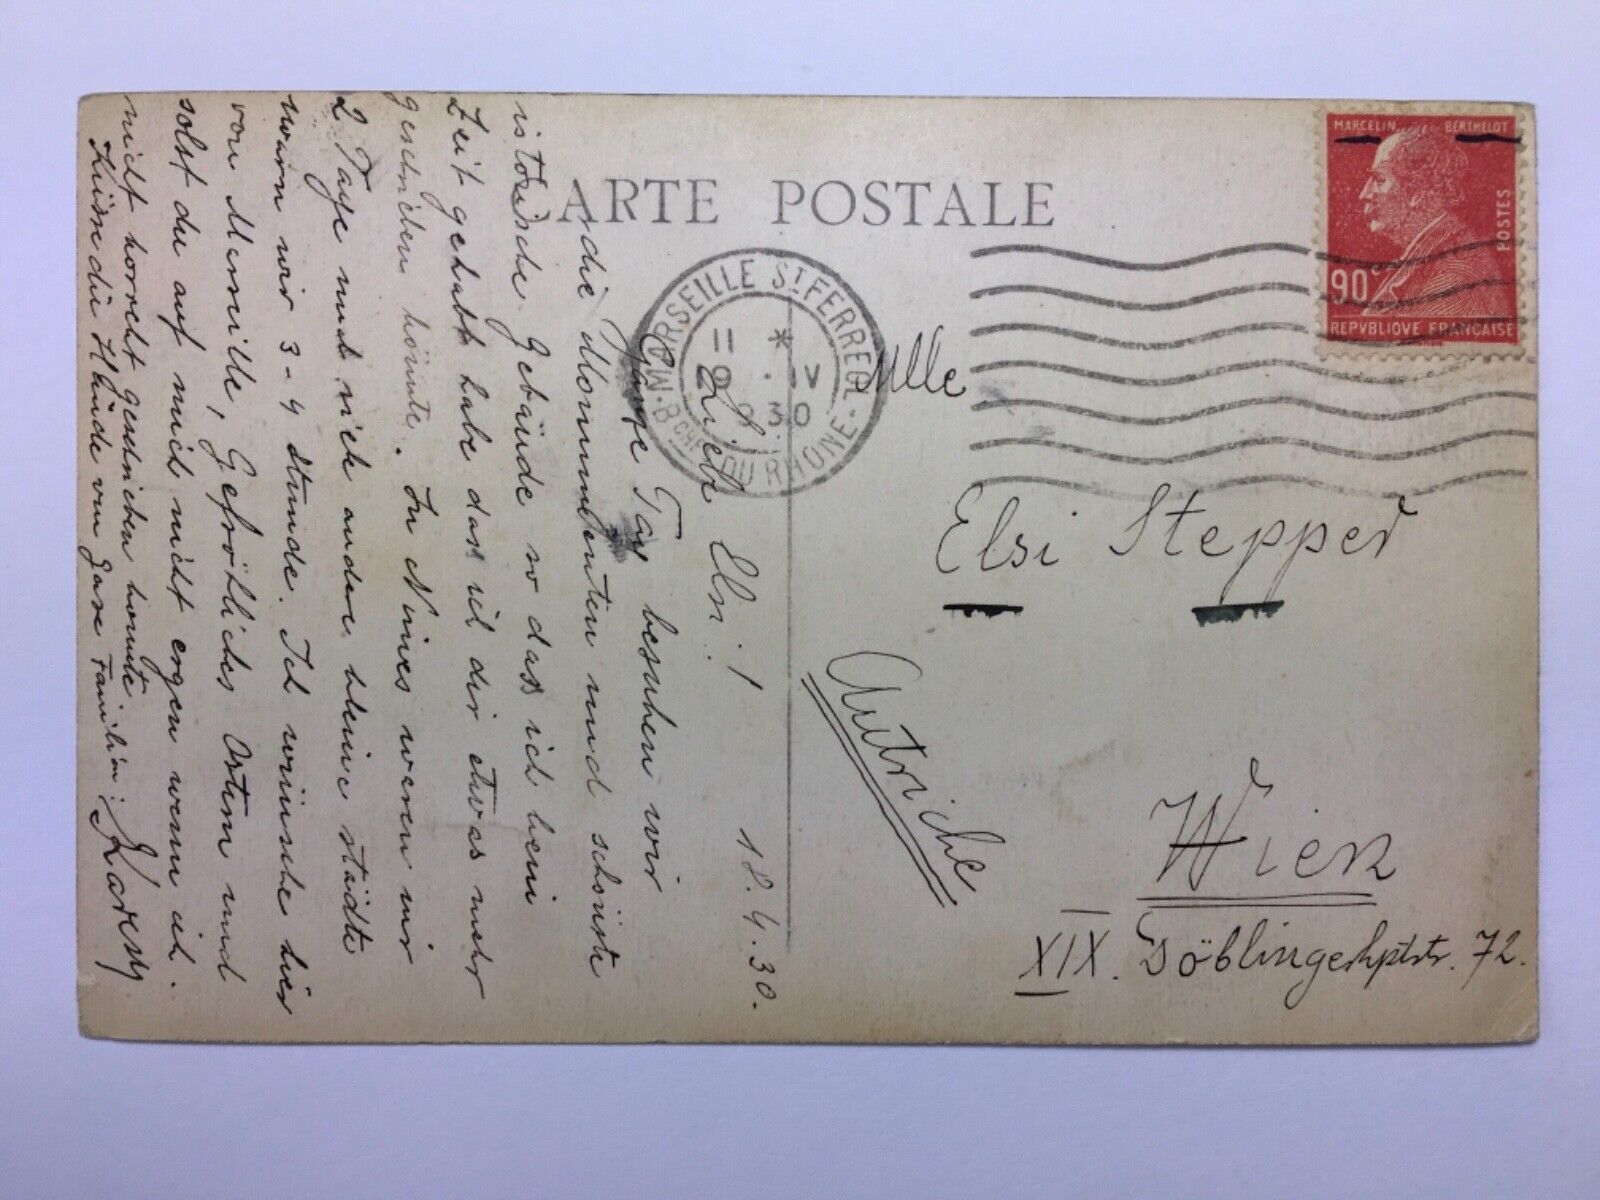 CARTE POSTALE
MARCELIN BERTHELOT
POSTES
90c
REPVBLIQVE FRANÇAISE
MARSEILLE ST FERREOL
BCHES DU RHONE
11 * IV
1930
Mlle
Elsi Stepper
Autriche
Wien
XIX. Döblingerhptstr. 72.
18.4.30.
Liebe Elsi!
Ganze Tag besuhen wir
die Monumenten und schönste
istorische Gebäude so dass ich keine
Zeit gehabt habe das ich dir etwas mehr
geschrieben könnte. In Nimes waren wir
2 Tage und sich andere kleine städte
waren wir 3-4 stunde. Ich wünsche hier
von Marseille, Gefröhliches Ostern und
solst du auf mich nicht ergen wenn ich
nicht korrekt geschrieben konnte
Küsse die Hände von ganze Familie